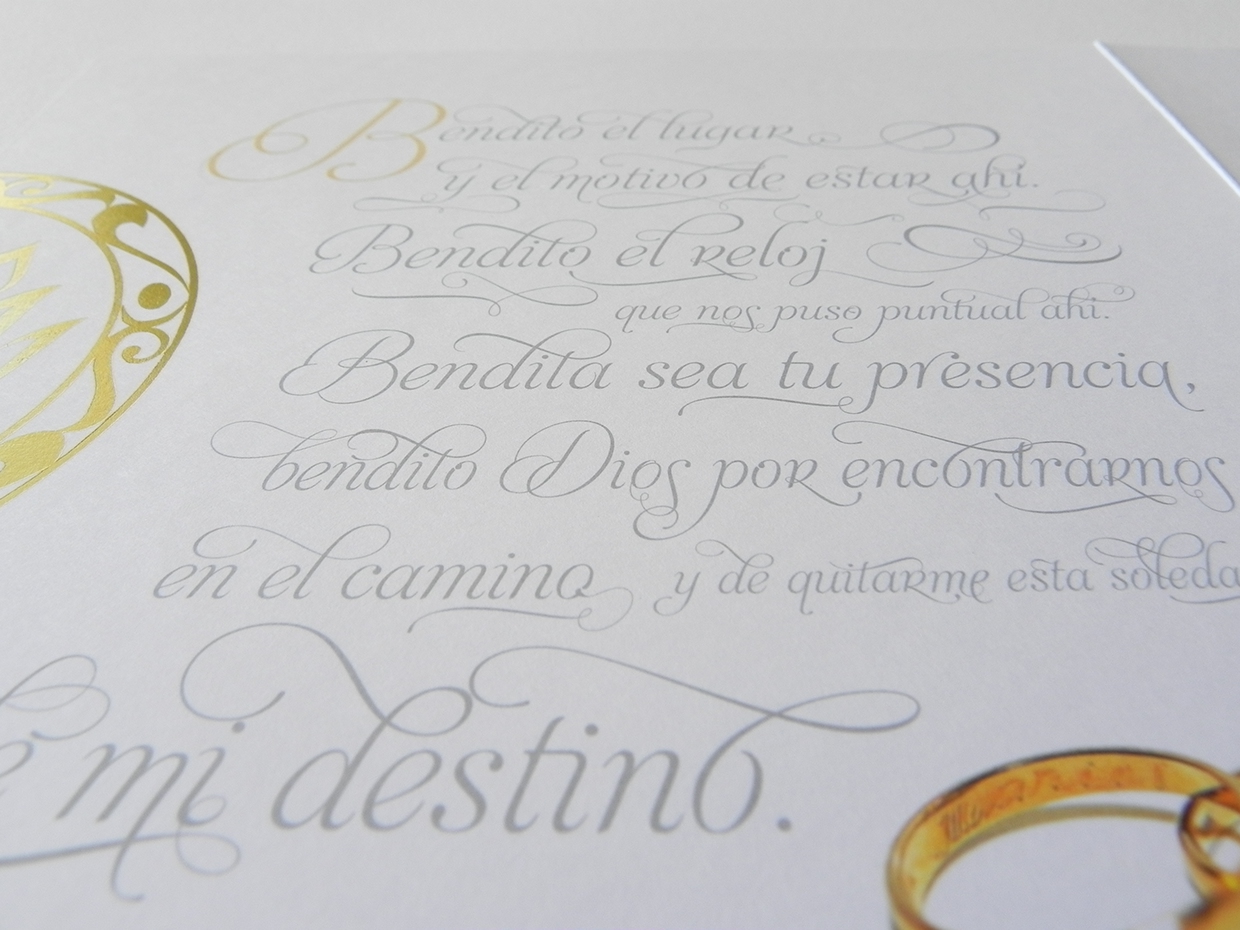 Bendito el lugar
y el motivo de estar ahí.
Bendito el reloj
que nos puso puntual ahi.
Bendita sea tu presencia,
bendito Dios por encontrarnos
en el camino y de quitarme esta soleda
mi destino.